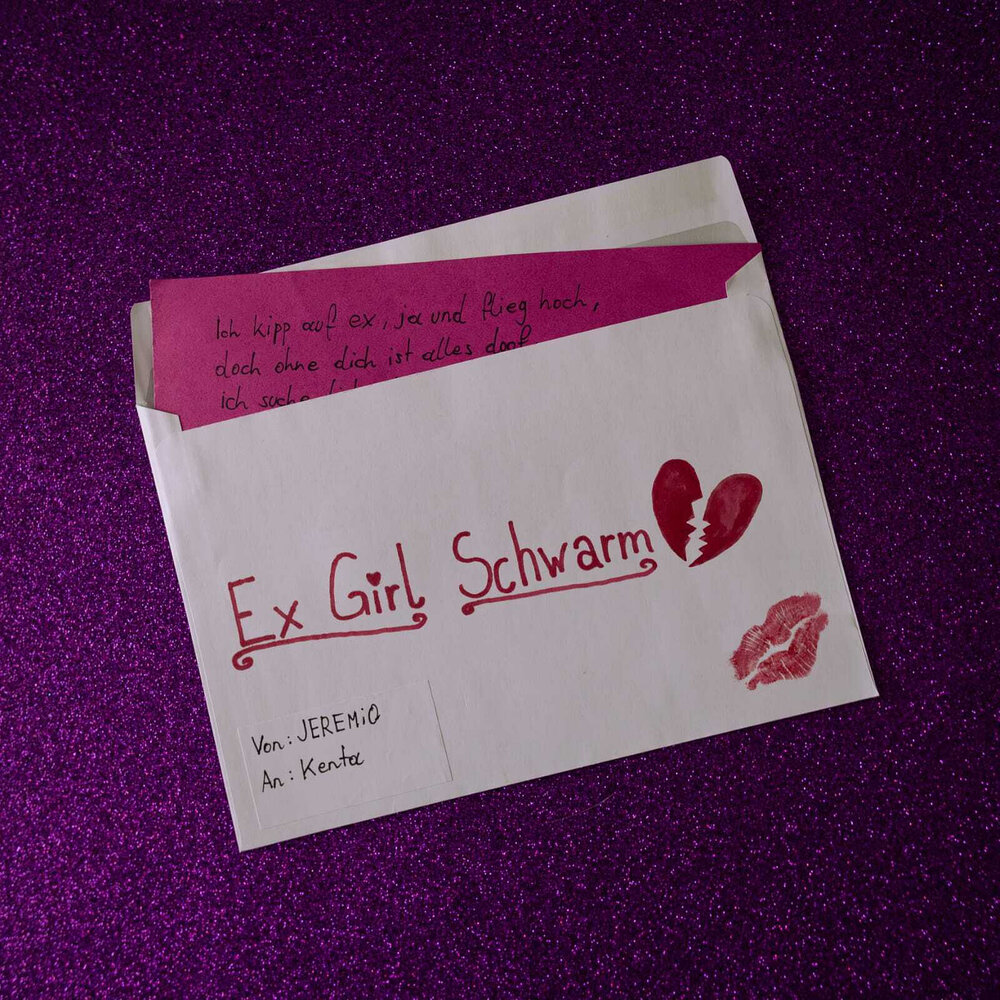 Ich kipp auf ex, ja und flieg hoch,
doch ohne dich ist alles doof
ich suche
Ex Girl Schwarm
Von: JEREMiO
An: Kenta